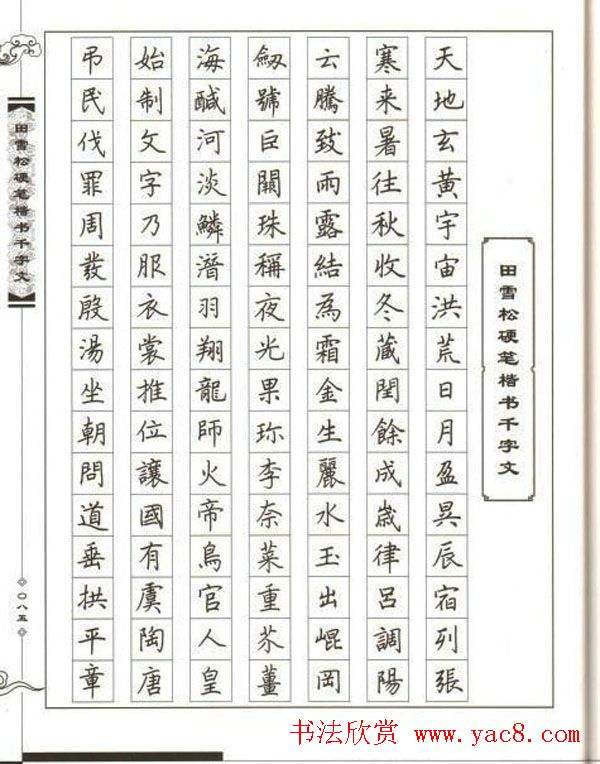 田雪松硬笔楷书千字文
天地玄黄宇宙洪荒日月盈昃辰宿列張
寒来暑往秋收冬藏閏餘成嵗律呂調陽
云騰致雨露結為霜金生麗水玉出崐岡
劔號巨闕珠稱夜光果珎李奈菜重芥薑
海醎河淡鱗潛羽翔龍師火帝鳥官人皇
始制文字乃服衣裳推位讓國有虞陶唐
吊民伐罪周發殷湯坐朝問道垂拱平章
田雪松硬笔楷书千字文
〇八五
书法欣赏 www.yac8.com